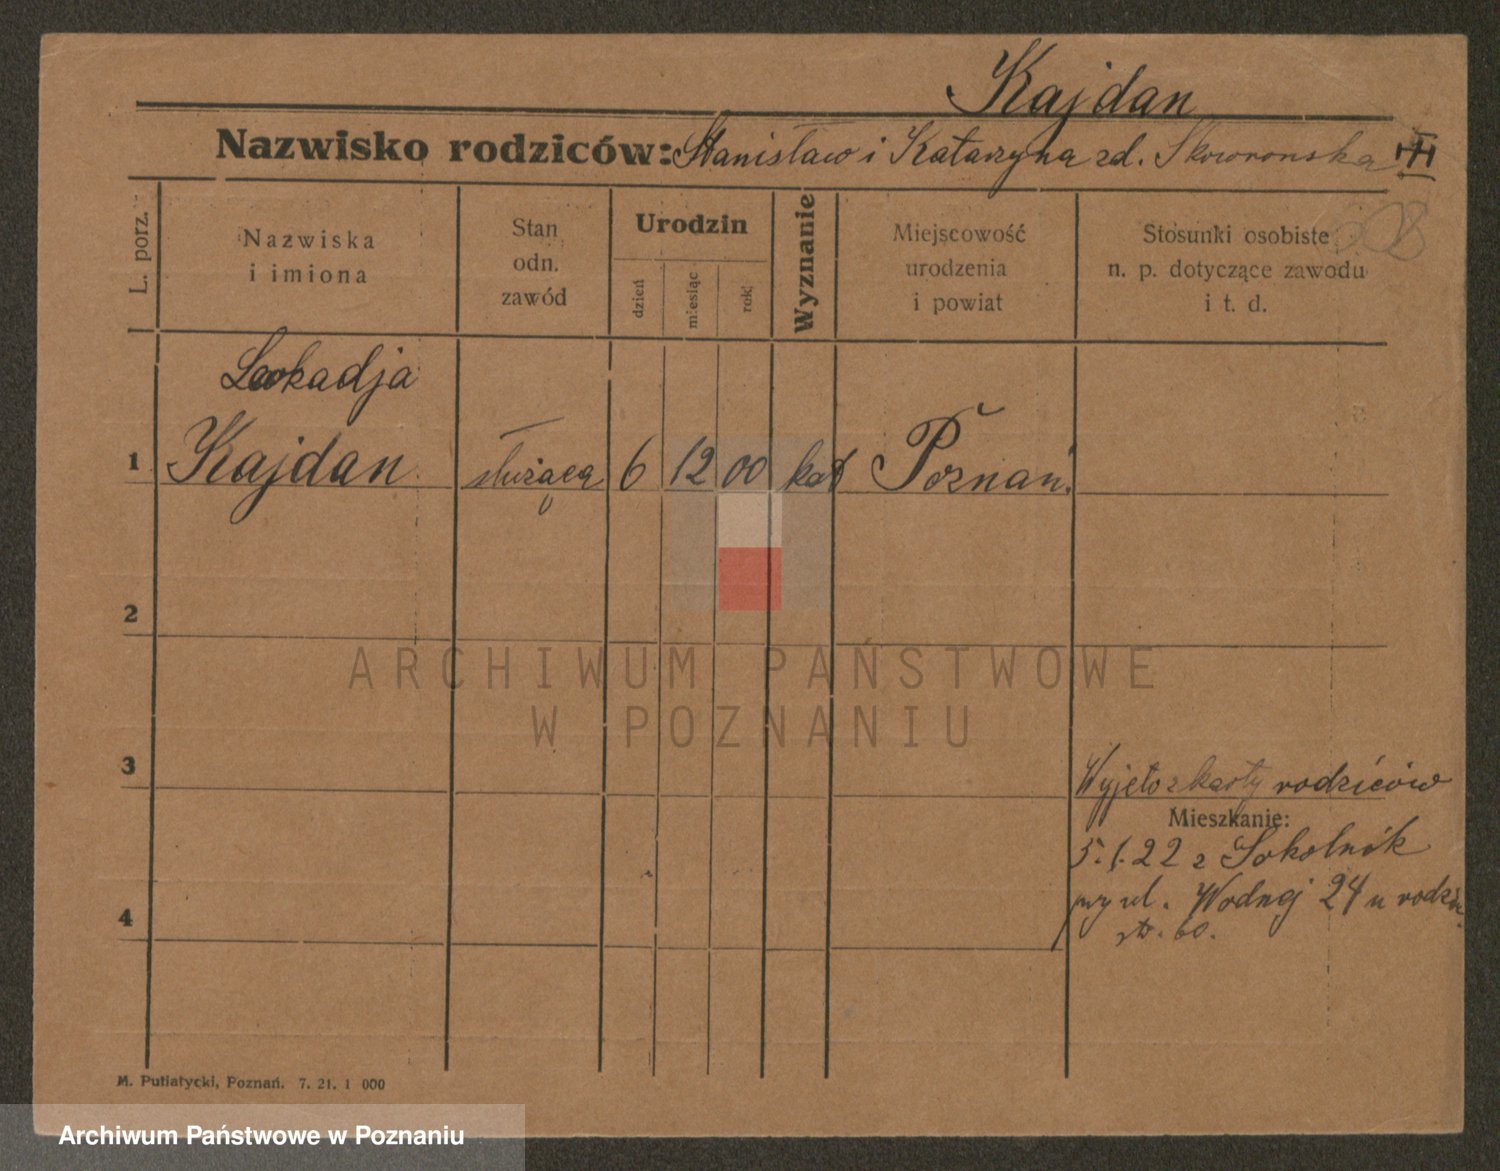 Kajdan
Nazwisko rodziców: Stanisław i Katarzyna zd. Skowronska
L. porz.
Nazwiska
i imiona
Stan
odn.
zawód
Urodzin
dzień
miesiąc
rok
Wyznanie
Miejscowość
urodzenia
i powiat
Stosunki osobiste
n. p. dotyczące zawodu
i t. d.
Leokadja
1 Kajdan służąca 6 12 00 kat Poznań.
2
ARCHIWUM PAŃSTWOWE
W POZNANIU
3
Wyjęto z karty rodziców
Mieszkanie:
5.1.22 z Sokolnik
przy ul. Wodnej 24 u rodz.
4
str. 60.
M. Putiatycki, Poznań. 7. 21. 1 000
Archiwum Państwowe w Poznaniu